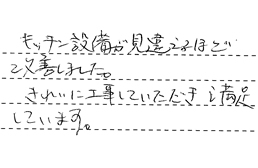 キッチン設備が見違えるほど
改善しました。
きれいに工事していただき満足
しています。